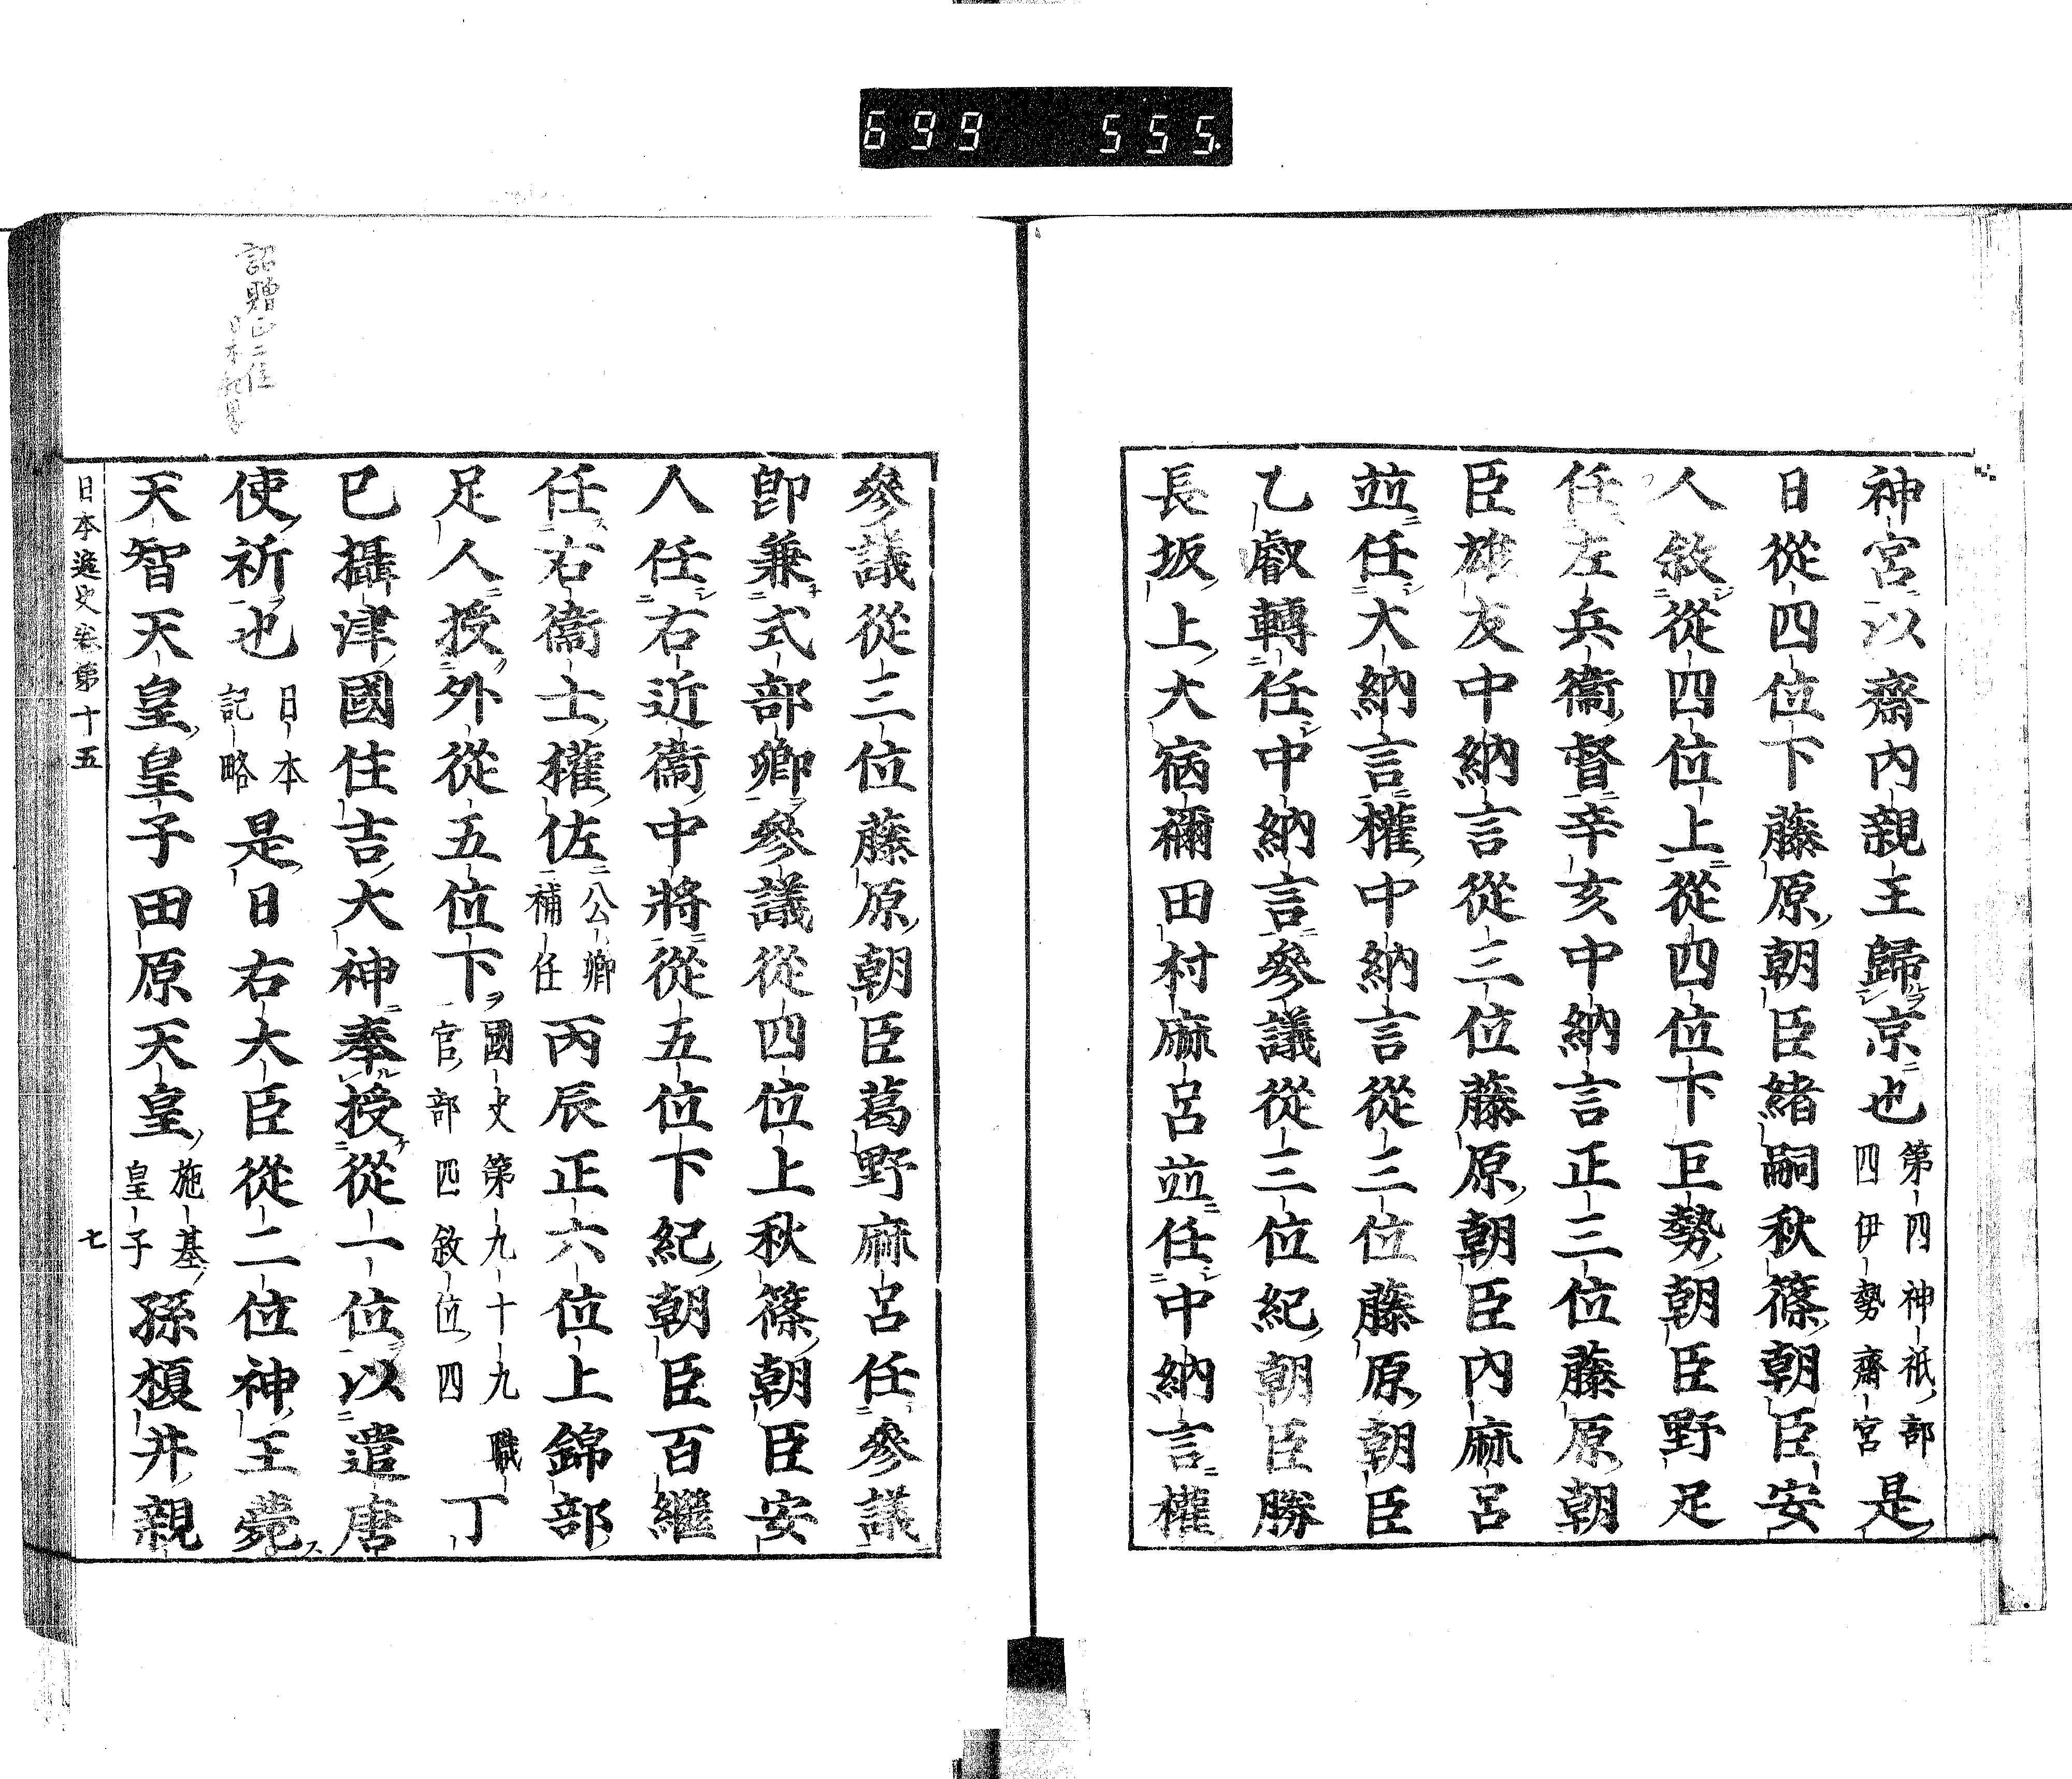 699 555
神宮以齋內親王歸京也第四神祇部四伊勢齋宮是
日從四位下藤原朝臣緒嗣秋篠朝臣安
人敘從四位上從四位下巨勢朝臣野足
任左兵衞督辛亥中納言正三位藤原朝
臣雄友中納言從三位藤原朝臣內麻呂
竝任大納言權中納言從三位藤原朝臣
乙叡轉任中納言參議從三位紀朝臣勝
長坂上大宿禰田村麻呂竝任中納言權
參議從三位藤原朝臣葛野麻呂任參議
卽兼式部卿參議從四位上秋篠朝臣安
人任右近衞中將從五位下紀朝臣百繼
任右衞士權佐公卿補任丙辰正六位上錦部
足人授外從五位下國史第九十九職官部四敘位四丁
巳攝津國住吉大神奉授從一位以遣唐
使祈也日本記略是日右大臣從二位神王薨
天智天皇皇子田原天皇施基皇子孫榎井親
日本逸史卷第十五 七
詔贈正二位
日本紀畧